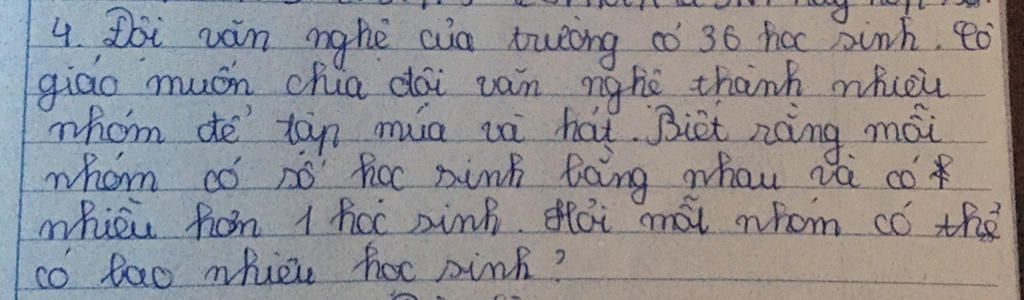 4. Đội văn nghệ của trường có 36 học sinh. Cô
giáo muốn chia đội văn nghệ thành nhiều
nhóm để tập múa và hát. Biết rằng mỗi
nhóm có số học sinh bằng nhau và có
nhiều hơn 1 học sinh. Hỏi mỗi nhóm có thể
có bao nhiêu học sinh?